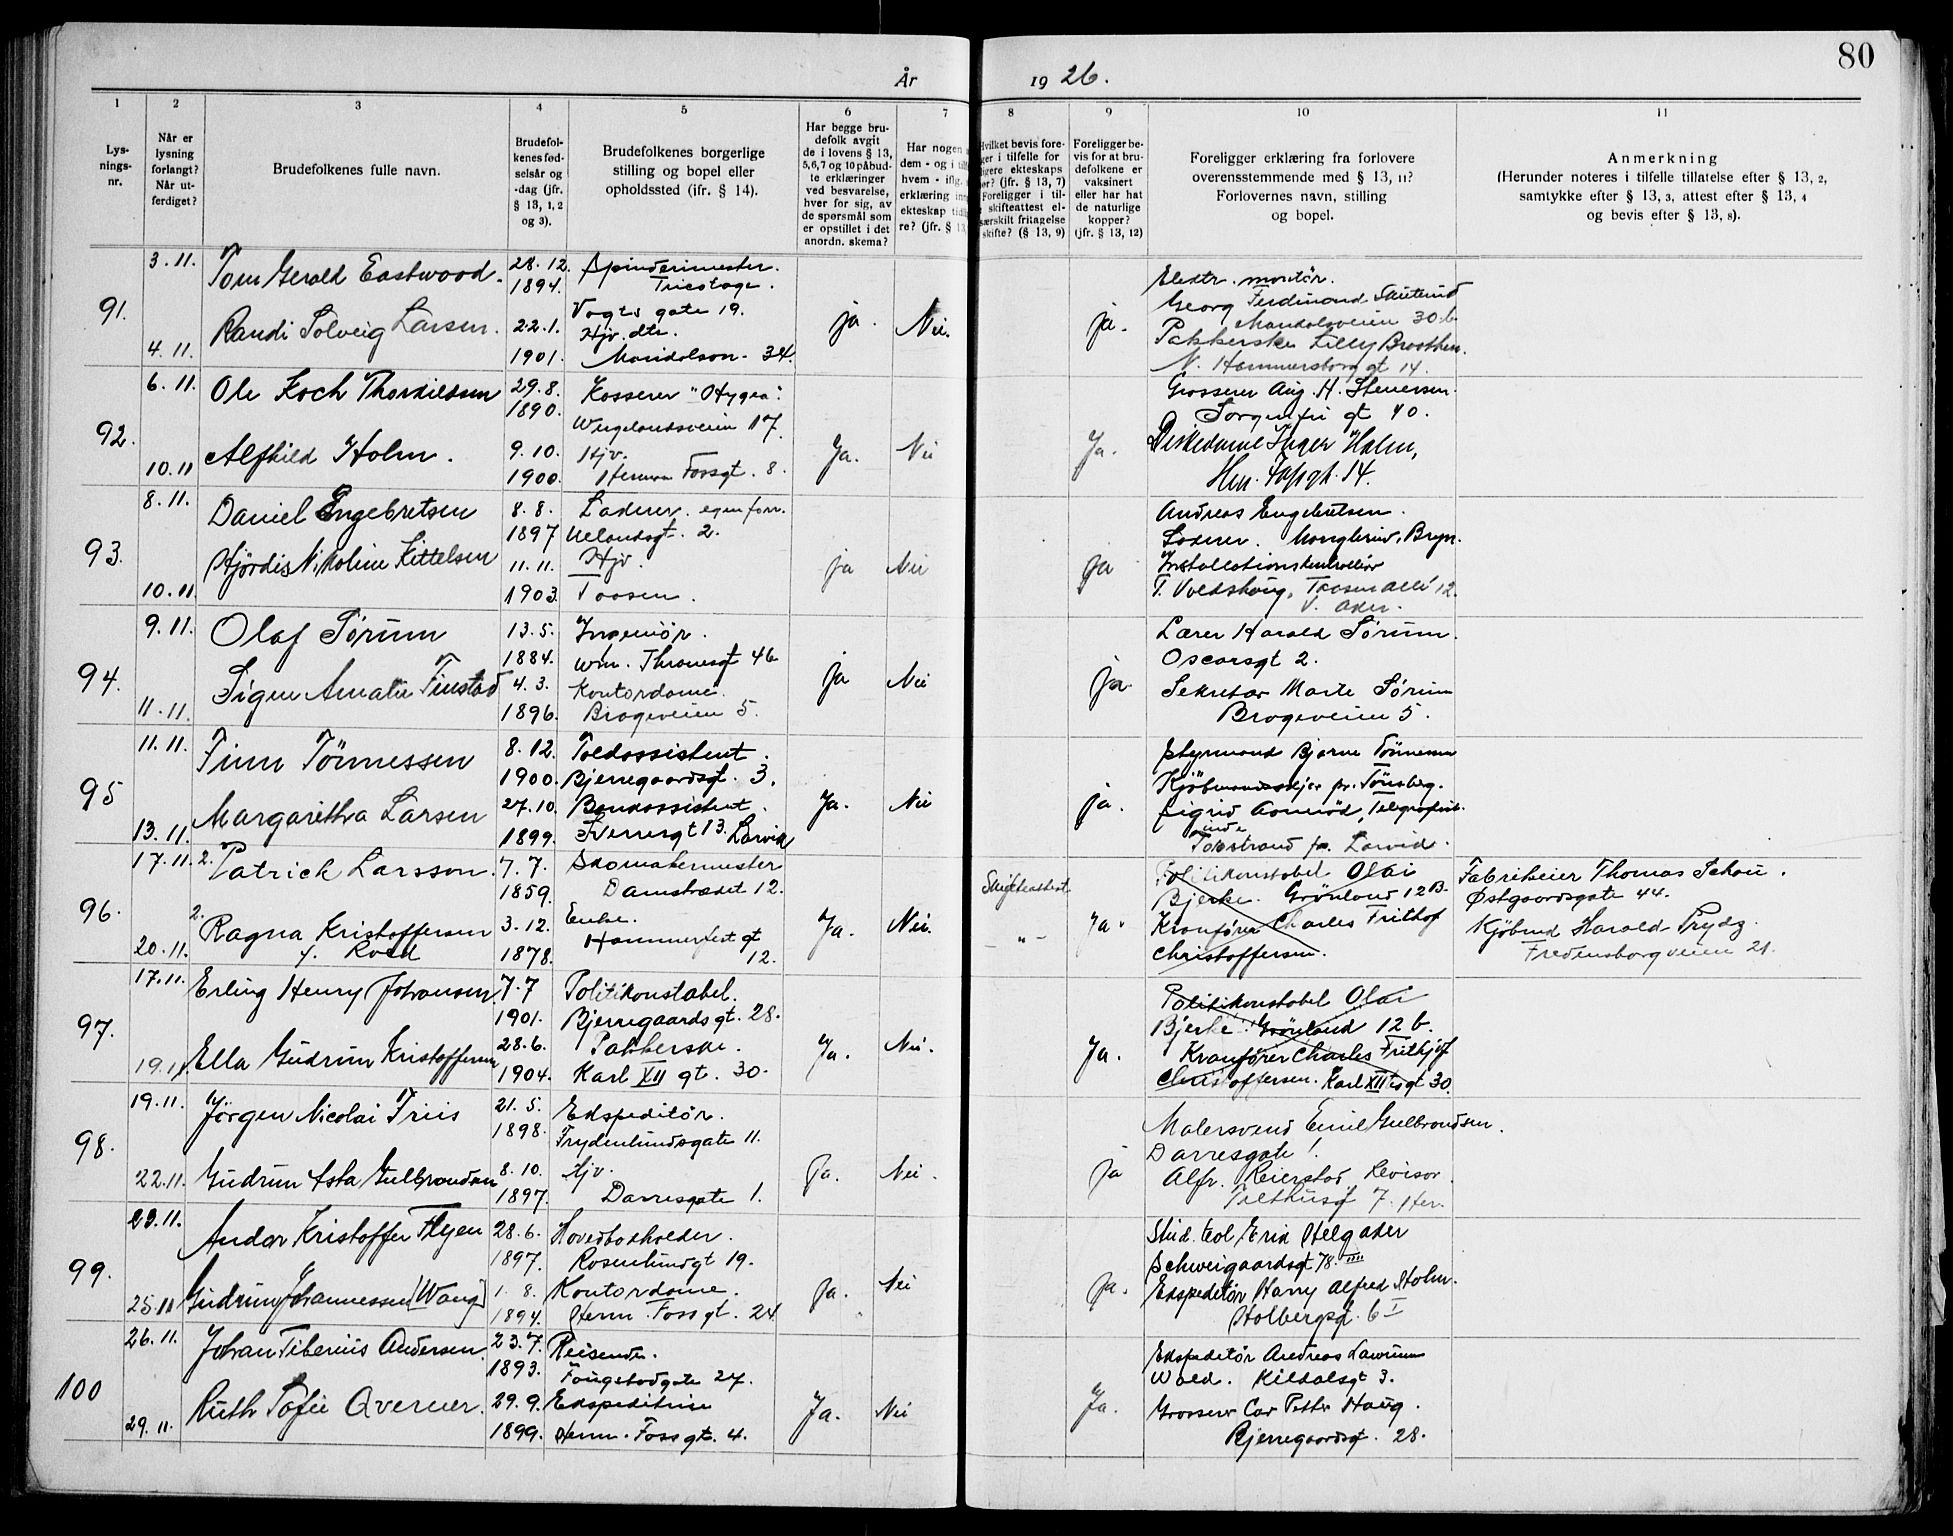 80
År 1926.
1
2
3
4
5
6
7
8
9
10
11
Lys-
nings-
nr.
Når er
lysning
forlangt?
Når ut-
ferdiget?
Brudefolkenes fulle navn.
Brudefol-
kenes fød-
selsår og
-dag (jfr.
§ 13, 1, 2
og 3).
Brudefolkenes borgerlige
stilling og bopel eller
opholdssted (ifr. § 14).
Har begge bru-
defolk avgit
de i lovens § 13,
5,6,7 og 10 påbud-
te erklæringer
ved besvarelse,
hver for sig, av
de spørsmål som
er opstillet i det
anordn. skema?
Har nogen
dem - og i
hvem - iflg.
erklæring
ekteskap
re? (jfr. § 13,
Hvilket bevis fore-
ger i tilfelle for
ligere ekteskaps
ør? (jfr. § 13, 7)
Foreligger i til-
skifteattest el-
særskilt fritagelse
skifte? (§ 13, 9)
Foreligger be-
vis for at bru-
defolkene er
vaksinert
eller har hat
de naturlige
kopper?
(jfr. § 13, 12)
Foreligger erklæring fra forlovere
overensstemmende med § 13, 11?
Forlovernes navn, stilling
og bopel.
Anmerkning
(Herunder noteres i tilfelle tillatelse efter § 13, 2,
samtykke efter § 13, 3, attest efter § 13, 4
og bevis efter § 13, 8).
91.
3.11.
4.11.
Tom Gerald Eastwood.
Randi Solveig Larsen.
28.12.
1894.
22.1.
1901.
Spinderimester.
Tricotage.
Vogts gate 19.
Hjv. dtr.
34.
ja.
Nei.
ja.
Elektr. montør.
Georg Ferdinand
30.b.
Pakkerske Lilly
N. Hammersborg gt 14.
92.
6.11.
10.11
Ole Koch
Alfhild Holm.
29.8.
1890.
9.10.
1900.
Kasserer "Hygea".
Wergelandsveien 17.
Hjv.
Herman Fossgt. 8.
Ja.
Nei
Ja.
Grosserer Aug. H. Stenersen.
Sorgenfri gt 40.
Diskedame Inger Holm,
Hm. Fossgt. 14.
93.
8.11.
10.11
Daniel Engebretsen
Hjördis Nikoline Kittelsen
8.8.
1897
11.11.
1903.
egen forr.
Uelandsgt. 2.
Hjv.
Taasen.
ja
Nei
ja
Andreas Engebretsen.
Manglerud, Bryn.
Installationskontrollör
T. Voldshaug, Taasen allé 12.
V. Aker.
94.
9.11.
11.11.
Olaf Sørum
Signe Amalie Finstad
13.5.
1884.
4.3.
1896.
Ingeniør.
Wm. Thranesgt 46
Kontordame.
Brageveien 5.
ja
Nei
ja.
Lærer Harald Sørum.
Oscarsgt 2.
Sekretær Marte Sörum
Brageveien 5.
95
11.11.
13.11.
Finn Tönnessen
Margarethra Larsen
8.12.
1900.
27.10.
1899.
Toldassistent.
Bjerregaardsgt. 3.
Sverresgt 13. Larvik
Ja.
Nei
ja.
Styrmand Bjarne Tönnessen
pr. Tönsberg.
Sigrid
pr. Larvik.
96.
17.11.
20.11.
2. Patrick Larsson.
2. Ragna Kristoffersen
f.
7.7.
1859.
3.12.
1878.
Skomakermester
Damstrædet 12.
Enke.
Hammerfest gt
12.
Ja.
Nei.
Skifteattest
- " -
Ja.
Politikonstabel Olai
Bjerke. Grönland 12 B.
Kranfører Charles Frithof
Christoffersen.
Fabrikeier Thomas Schou.
Østgaardsgate 44.
Kjöbmd Harald Prydz
Fredensborgveien 21.
97.
17.11.
19.11
Erling Henry Johansen
Ella Gudrun Kristoffersen
7.7
1901.
28.6.
1904.
Politikonstabel.
Bjerregaards gt. 28.
Pakkerske.
Karl XII gt. 30.
Ja.
Nei.
Ja.
Politikonstabel Olai
Bjerke. Grönland 12 b.
Kranfører Charles Frithjof
Christoffersen. Karl XII gt 30.
98.
19.11.
22.11.
Jörgen Nicolai Friis
Gudrun Asta Gulbrandsen
21.5.
1898.
8.10.
1897.
Ekspeditör.
Frydenlundsgate 11.
Hjv.
Darresgate 1.
Ja.
Nei.
ja
Malersvend Emil Gulbrandsen.
Darresgate 1.
Alfr. Reierstad. Revisor.
7. Her.
99.
23.11.
25.11
Andor Kristoffer Flyen
Gudrun Johannessen [Wang]
28.6.
1897.
1.8.
1894.
Hovedbokholder.
Rosenlundgt 19.
Kontordame.
Herm. Fossgt. 24
Ja.
Nei
Ja.
Stud. teol Erik Helgaker
Schweigaardsgt 78. IIII
Ekspeditör Harry Alfred Holm.
Holbergsgt. 6 I
100
26.11.
29.11.
Johan Tiberius Andersen
Ruth Sofie Qverner.
23.7.
1893.
29.9.
1899.
Reisende.
27.
Ekspeditrise
Herm. Foss gt. 4.
Ja.
Nei
Ja.
Ekspeditör Andreas
Wold. Kildalsgt 3.
Grosserer Petter Haug.
Bjerregaardsgt. 28.